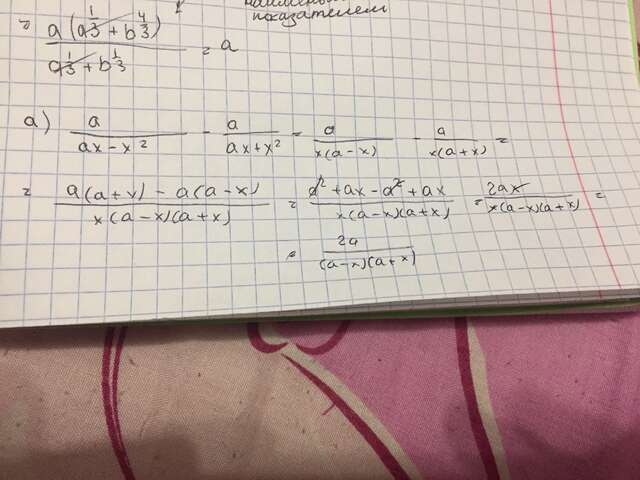 наимень
показателем
= a(a^{1/3} + b^{4/3}) / (a^{1/3} + b^{1/3}) = a
а) a/(ax - x²) - a/(ax + x²) = a/(x(a-x)) - a/(x(a+x)) =
= (a(a+x) - a(a-x))/(x(a-x)(a+x)) = (a² + ax - a² + ax)/(x(a-x)(a+x)) = 2ax/(x(a-x)(a+x)) =
= 2a/((a-x)(a+x))